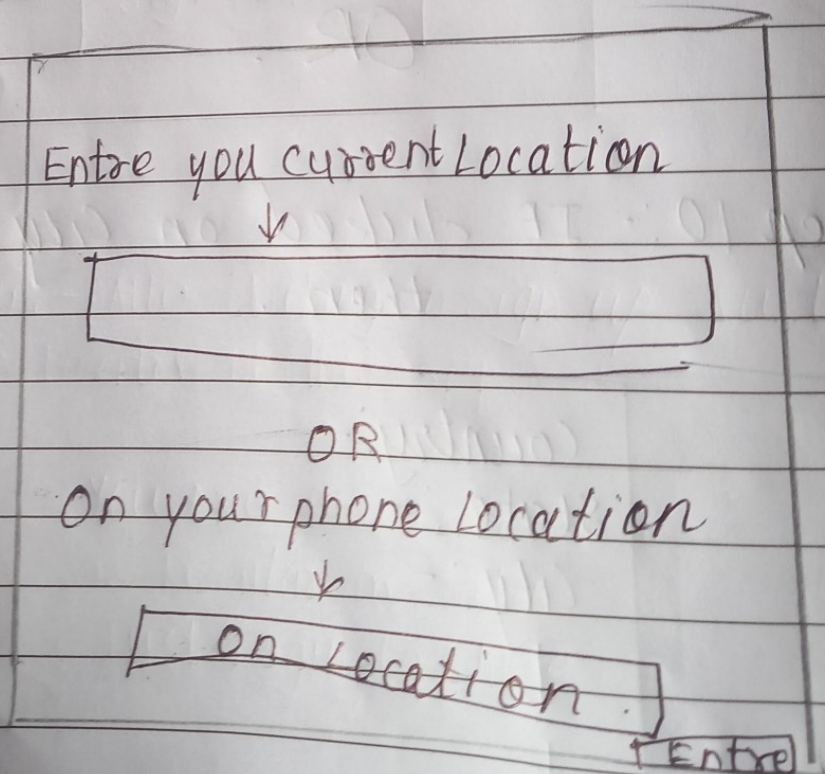 Entre you current Location
OR
On your phone Location
On Location
Entre